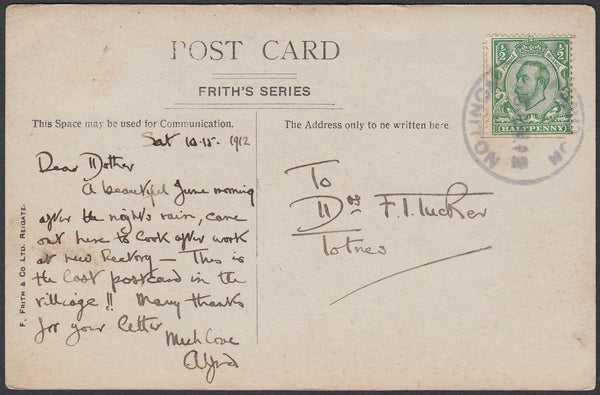 POST CARD
FRITH'S SERIES
This Space may be used for Communication.
The Address only to be written here.
Sat 1912
Dear Mother
A beautiful June morning
after the night's rain, came
out here to look after work
at new Rectory — This is
the last postcard in the
villiage !! Many thanks
for your letter
Much love
Alfred
To
Mrs F. T. Tucker
Totnes
F. FRITH & CO LTD. REIGATE.
½ ½
HALFPENNY